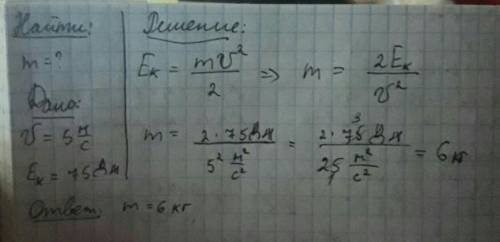 Найти:
m = ?
Дано:
V = 5 м/с
Eк = 75 Дж
Решение:
Eк = mV²/2 => m = 2Eк/V²
m = 2·75 Дж / 5² м²/с² = 2·75 Дж / 25 м²/с² = 6 кг
3
Ответ: m = 6 кг